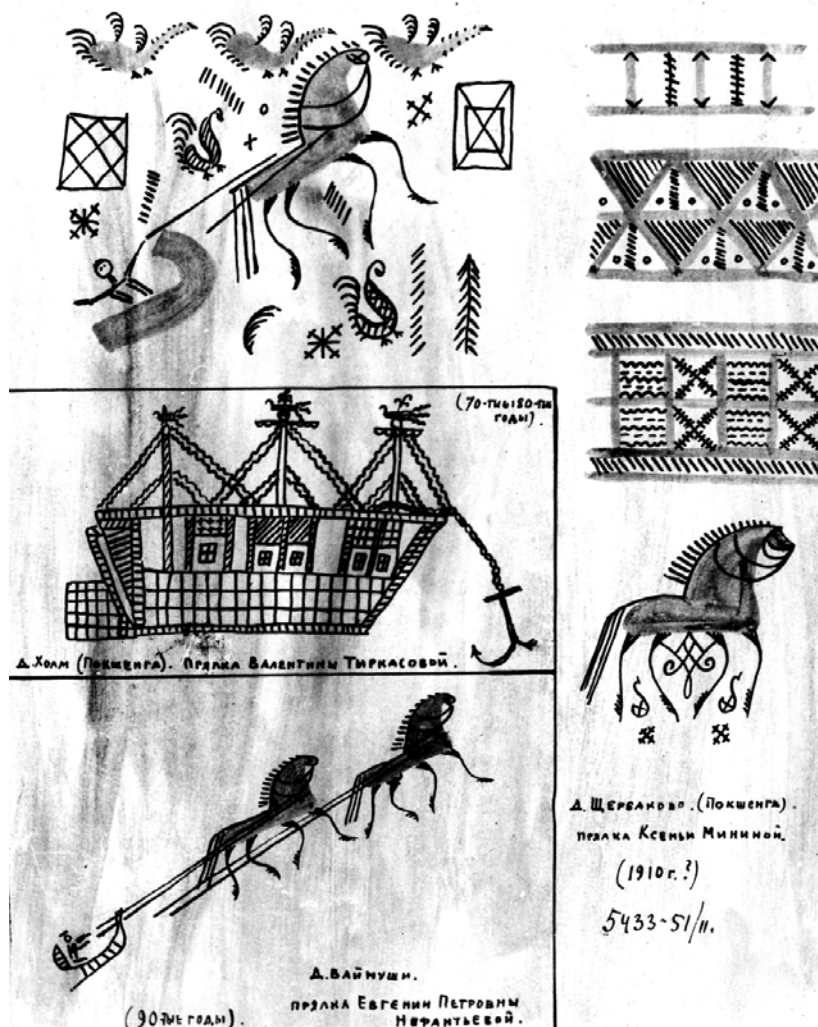 (70-тые 80-тые
годы).
Д. Холм (Покшенга). прялка Валентины Тиркасовой.
Д. Ваймуши.
прялка Евгении Петровны
Нефантьевой.
(90-тые годы).
Д. Щербаково. (Покшенга).
прялка Ксеньи Мининой.
(1910 г. ?)
5433-51/II.